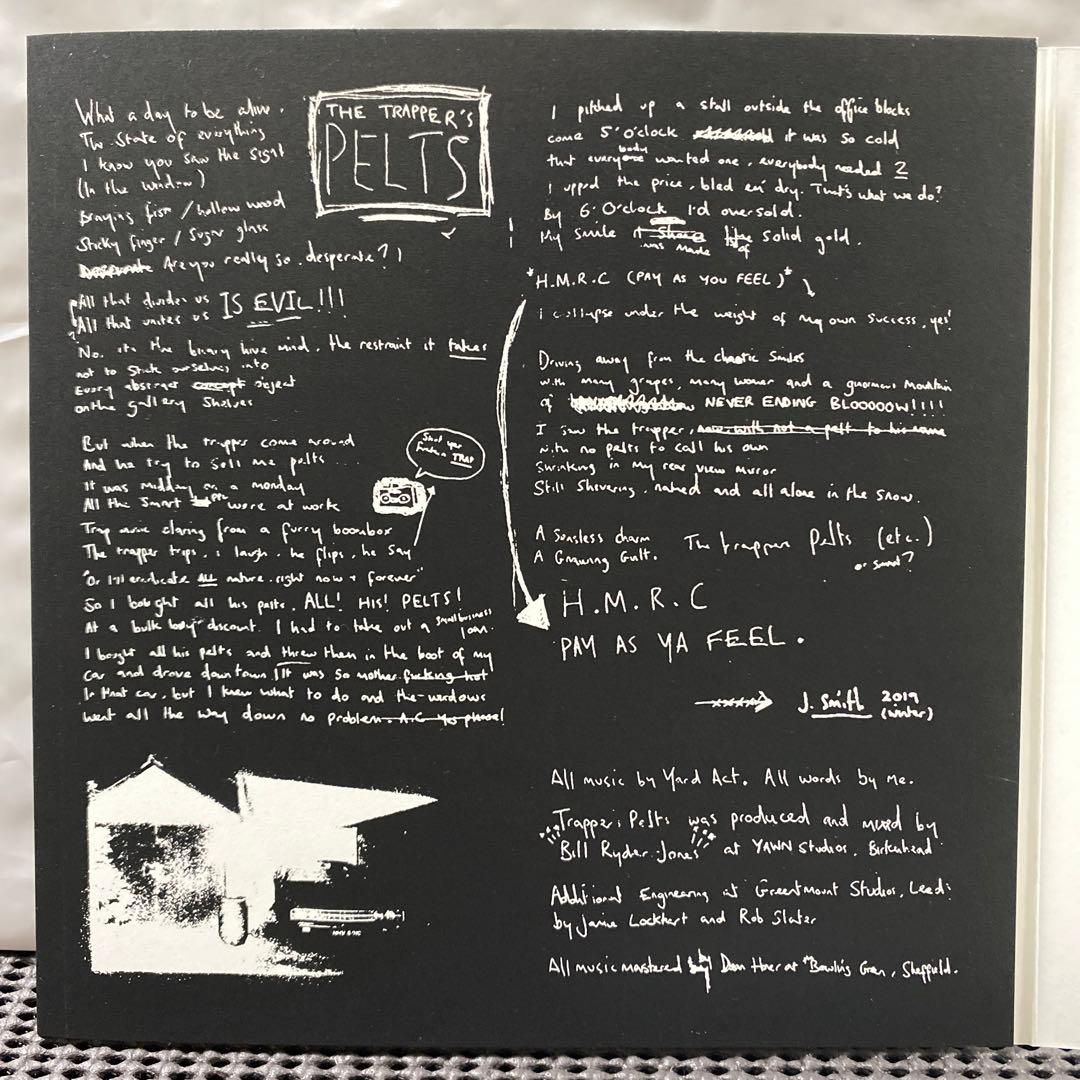 THE TRAPPER'S
PELTS
What a day to be alive.
The State of everything
I know you saw the sight
(In the window)
Braying fist / hollow wood
Sticky finger / Sugar glass
Desperate Are you really so desperate?
All that divides us IS EVIL!!!
All that unites us
No, its the binary hive mind, the restraint it takes
not to stick ourselves into
Every abstract concept object
on the gallery shelves
But when the trapper come around
And he try to sell me pelts ...
It was midday on a monday
All the Smart were at work
Trap music blaring from a furry boombox
The trapper trips, i laugh, he flips, he say
Shut yer
TRAP
"Or I'll eradicate ALL nature right now + forever"
So I bought all his pelts. ALL! HIS! PELTS!
At a bulk buy discount. I had to take out a small business
loan.
I bought all his pelts and threw them in the boot of my
car and drove downtown. It was so mother fucking hot
In that car, but I knew what to do and the windows
went all the way down no problem. A.C Yes please!
I pitched up a stall outside the office blocks
come 5 'o'clock it was so cold
that everybody wanted one, everybody needed 2
I upped the price, bled em' dry. That's what we do?
By 6 'O'clock I'd oversold.
My smile it shone like solid gold.
was made of
*H.M.R.C (PAY AS YOU FEEL)*
i collapse under the weight of my own success, yes!
Driving away from the chaotic smiles
with many grapes, many women and a guormous mountain
of NEVER ENDING BLOOOOOW!!!!
I saw the trapper, now with not a pelt to his name
with no pelts to call his own
Shrinking in my rear view mirror
Still Shivering, naked and all alone in the snow.
A Sonsless charm
A Growing Guilt. The trappers Pelts (etc.)
or sweat?
H.M.R.C
PAY AS YA FEEL.
J. Smith 2019
(winter)
All music by Yard Act. All words by me.
Trappers Pelts was produced and mixed by
Bill Ryder-Jones at YAWN Studios, Birkenhead
Additional Engineering at Greenmount Studios, Leeds
by Jamie Lockhart and Rob Slater
All music mastered by at Bowling Green, Sheffield.